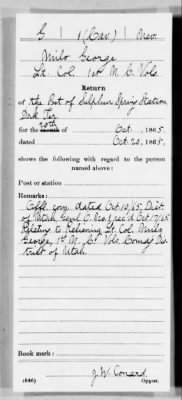 G | 1 (Cav.) | Nev.
Milo George
Lt. Col. 1st N. C. Vols.
Return
of the Post of Sulphur Spring Station
Dak Ter
20th
for the month of Oct., 1865,
dated Oct. 20, 1865,
shows the following with regard to the person
named above:
Post or station
Remarks:
Offl. com. dated Oct 10/65, Dist
of Utah, Genl O. No. 1 rec'd Oct 17/65
Relating to Relieving Lt. Col. Milo
George, 1st N. C. Vols. Comdg Dis
trict of Utah
Book mark:
J. W. Conard.
(646) Copyist.